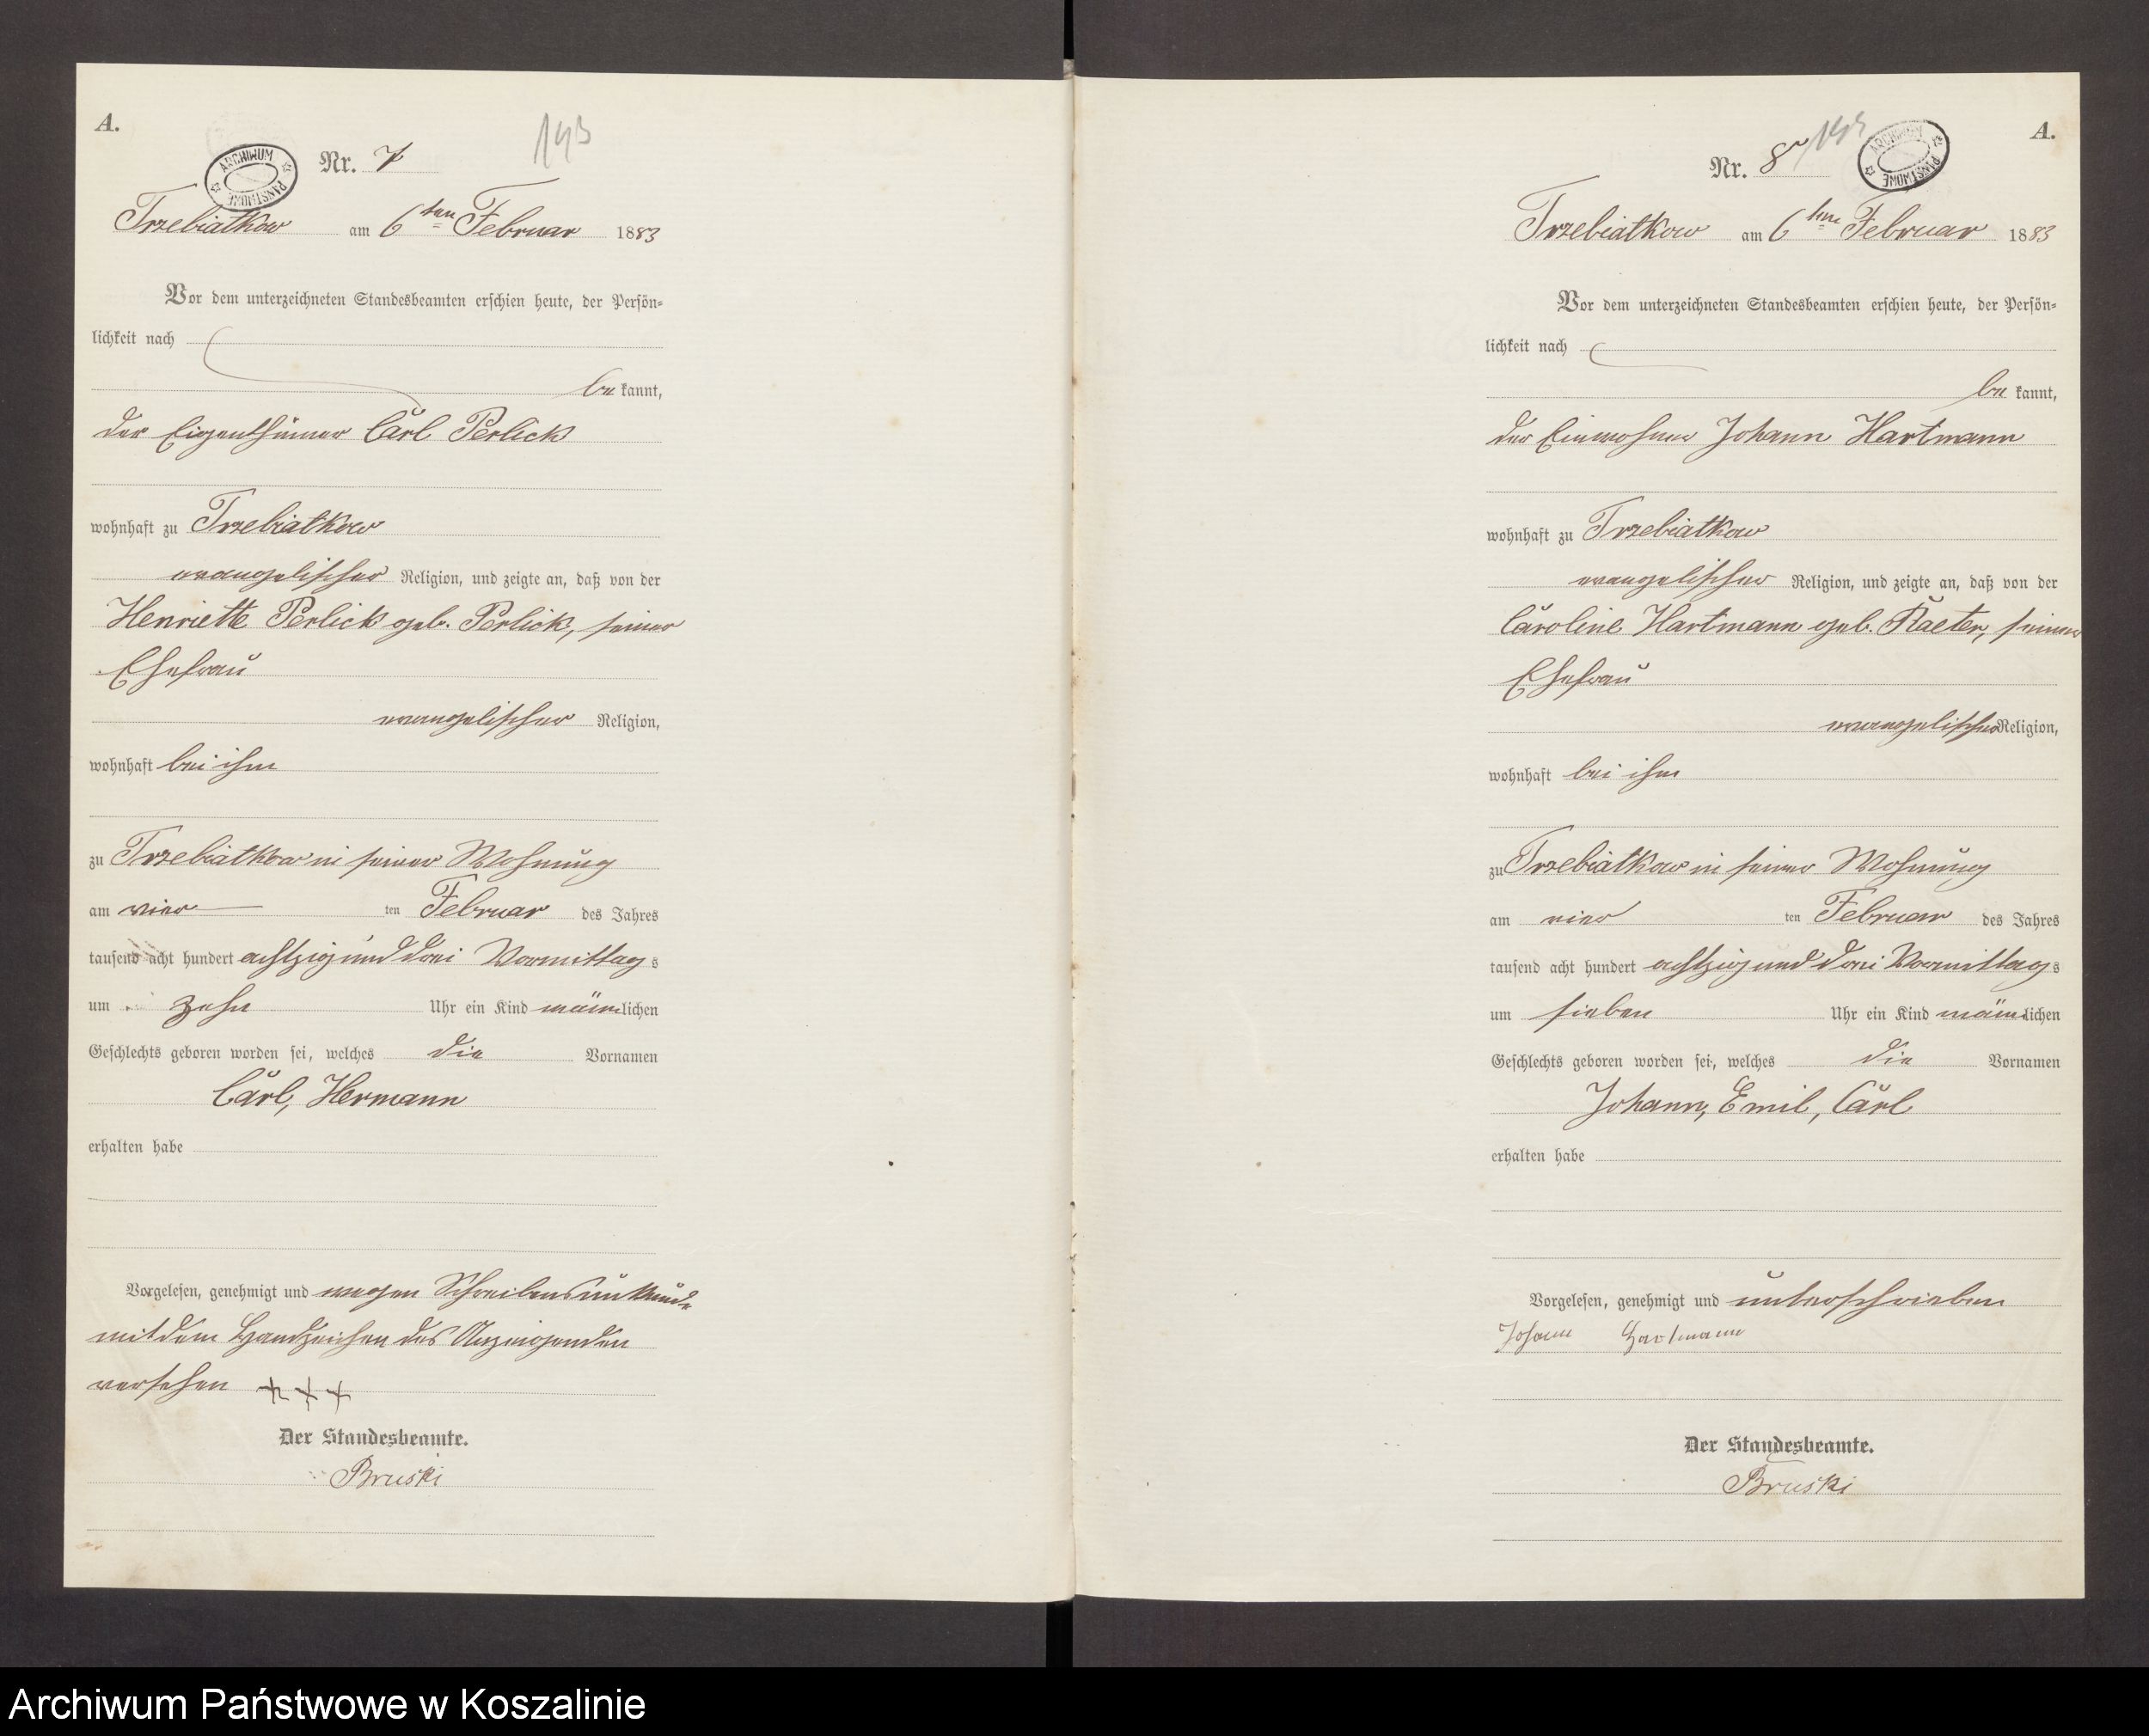 A.
193
ARCHIWUM PAŃSTWOWE
Nr. 7
Trzebiatkow am 6ten Februar 1883
Vor dem unterzeichneten Standesbeamten erschien heute, der Persön-
lichkeit nach
be kannt,
der Eigenthümer Carl Perlick
wohnhaft zu Trzebiatkow
evangelischer Religion, und zeigte an, daß von der
Henriette Perlick geb. Perlick, seiner
Ehefrau
evangelischer Religion,
wohnhaft bei ihm
zu Trzebiatkow in seiner Wohnung
am vier ten Februar des Jahres
tausend acht hundert achtzig und drei Vormittags
um zehn Uhr ein Kind männlichen
Geschlechts geboren worden sei, welches die Vornamen
Carl, Hermann
erhalten habe
Vorgelesen, genehmigt und wegen Schreibensunkunde
mit dem Handzeichen des Anzeigenden
versehen +++
Der Standesbeamte.
Bruski
A.
ARCHIWUM PAŃSTWOWE
Nr. 8
Trzebiatkow am 6ten Februar 1883
Vor dem unterzeichneten Standesbeamten erschien heute, der Persön-
lichkeit nach
be kannt,
der Einwohner Johann Hartmann
wohnhaft zu Trzebiatkow
evangelischer Religion, und zeigte an, daß von der
Caroline Hartmann geb. Kaeter, seiner
Ehefrau
evangelischer Religion,
wohnhaft bei ihm
zu Trzebiatkow in seiner Wohnung
am vier ten Februar des Jahres
tausend acht hundert achtzig und drei Vormittags
um sieben Uhr ein Kind männlichen
Geschlechts geboren worden sei, welches die Vornamen
Johann, Emil, Carl
erhalten habe
Vorgelesen, genehmigt und unterschrieben
Johann Hartmann
Der Standesbeamte.
Bruski
Archiwum Państwowe w Koszalinie